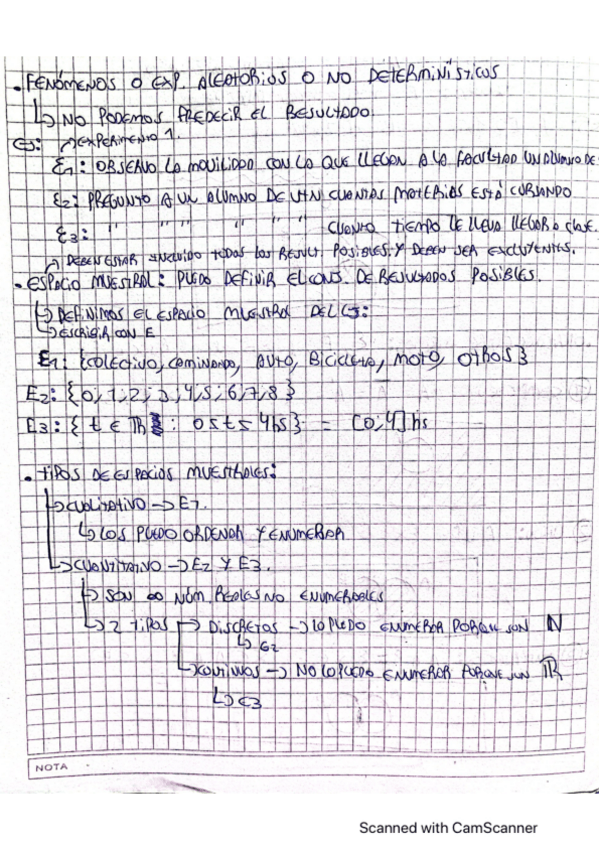 • FENÓMENOS O EXP. ALEATORIOS O NO DETERMINÍSTICOS
↳ NO PODEMOS PREDECIR EL RESULTADO.
EJ: ↗ EXPERIMENTO 1.
Ɛ1: OBSERVO LA MOVILIDAD CON LA QUE LLEGAN A LA FACULTAD UN ALUMNO DE
Ɛ2: PREGUNTO A UN ALUMNO DE UTN CUANTAS MATERIAS ESTÁ CURSANDO
Ɛ3: " " " " " " " CUANTO TIEMPO LE LLEVA LLEGAR A CLASE.
↗ DEBEN ESTAR INCLUIDO TODOS LOS RESULT. POSIBLES. Y DEBEN SER EXCLUYENTES.
• ESPACIO MUESTRAL: PUEDO DEFINIR EL CONJ. DE RESULTADOS POSIBLES.
↳ DEFINIMOS EL ESPACIO MUESTRAL DEL EJ:
↳ ESCRIBIR CON E
E1: {COLECTIVO, CAMINANDO, AUTO, BICICLETA, MOTO, OTROS}
E2: {0; 1; 2; 3; 4; 5; 6; 7; 8}
E3: { t ∈ ℝ : 0 ≤ t ≤ 4hs} = [0; 4] hs
• TIPOS DE ESPACIOS MUESTRALES:
↳ CUALITATIVO → E1.
↳ LOS PUEDO ORDENAR Y ENUMERAR
↳ CUANTITATIVO → E2 Y E3.
↳ SON ∞ NÚM. REALES NO ENUMERABLES
↳ 2 TIPOS → DISCRETOS → LO PUEDO ENUMERAR PORQUE SON ℕ
↳ E2
→ CONTINUOS → NO LO PUEDO ENUMERAR PORQUE SON ℝ
↳ E3
NOTA
Scanned with CamScanner